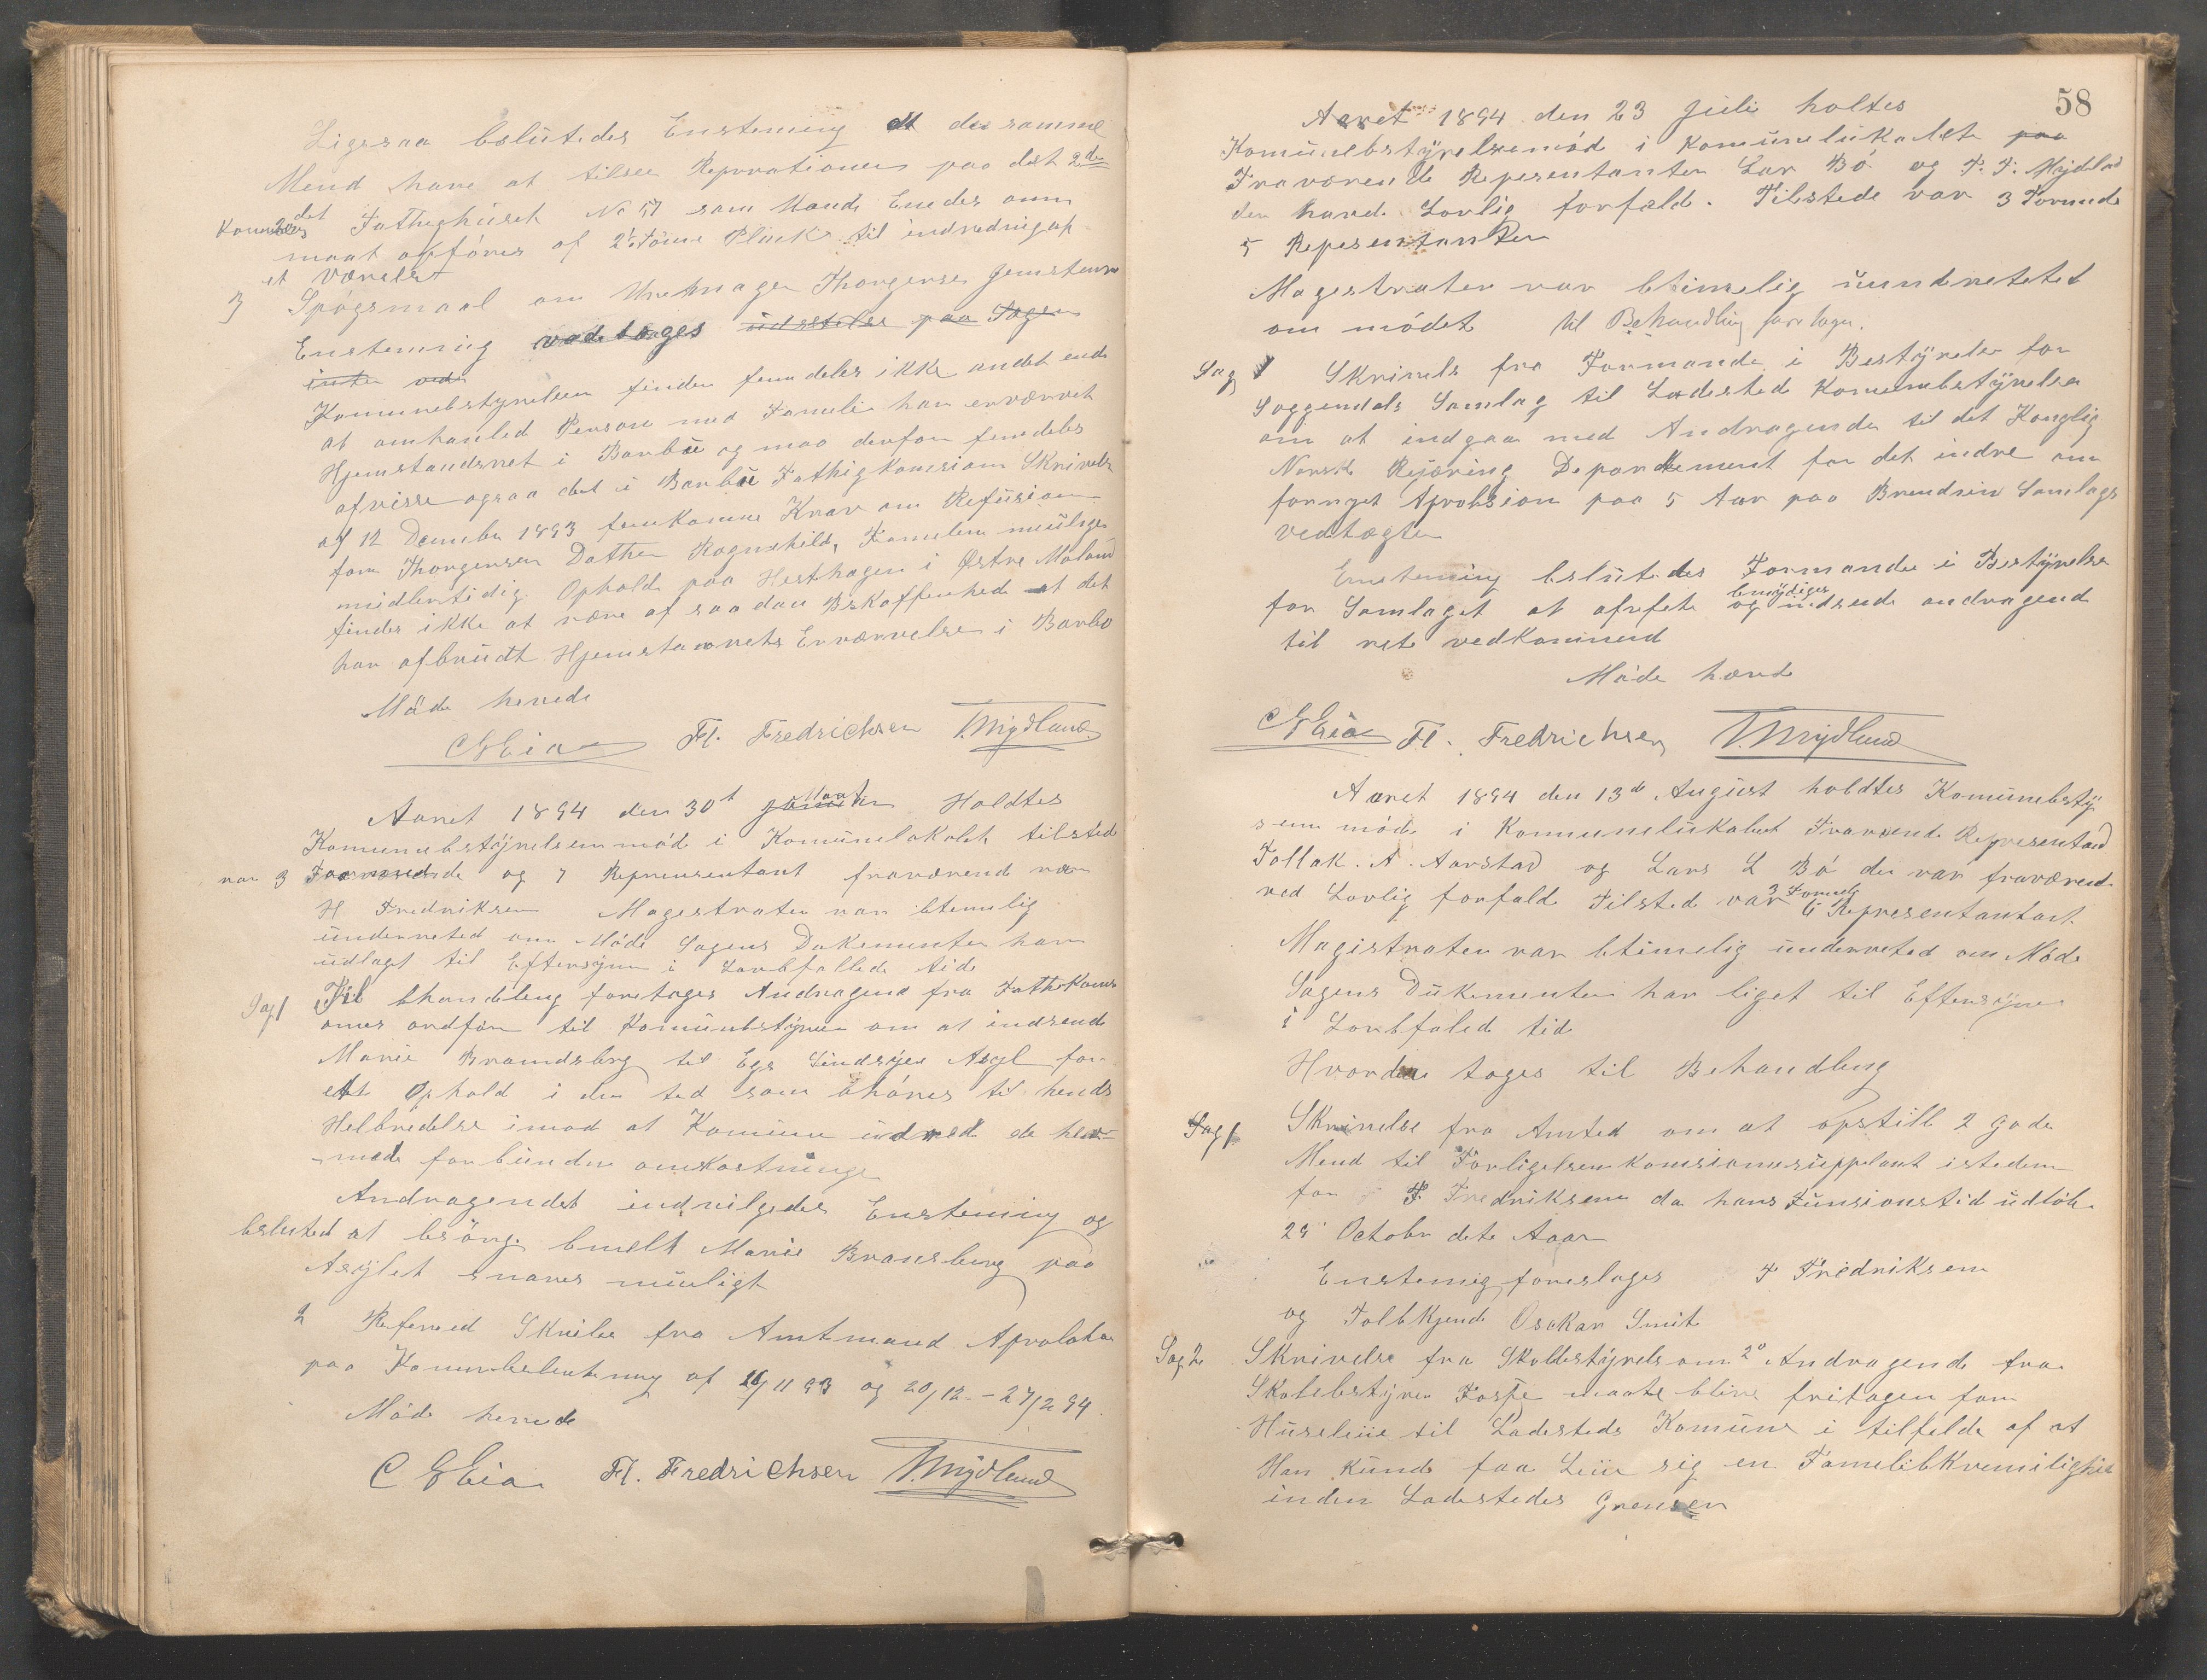 Ligesaa bslutedes Enstemig at de samme
Mend have at tilsee Reprationen paa det 2de
Komunes det Fathighuset No 51 som Mand Endes
maat opføres af 2½ Tømme Plank til indredning af
et Værelse
3 Spøgsmaal om Uhrmager Thorgersen Jemstavn
Enstemig vedtages udsettes paa Sagen
inter ved
Komunebstyrelsen finder fremdeles ikke andet end
at omhanled Person med Fameli har erværvet
Hjemstandsret i Barbu og maa derfor femdeles
afvise ogsaa det i Barbu Fathigkomsions Skrivels
af 12 Decmber 1893 femkomne Krav om Refusion
for Thorgersen Datter Ragnhild, Familien muligs
midlertidig Ophold paa Hesthagen i Østre Moland
findes ikke at være af saadan Bskaffenhed at det
har afbrudt Hjemstavnrets Erværvelse i Barbo
Møde hevede
C G Eia Fl. Fredrichsen T. Mydland
Aaret 1894 den 30t Maat Holdtes
Komunebstyrelsenmød i Komunelokalet tilsted
var 3 Formend og 7 Reprensentant fraværend var
H Fredriksen Magestraten var btemelig
underreted om Møde Sagens Dokumenter har
udlaget til Eftersyn i Lovbfallede tid
Sag 1 Til bhandleng foretages Andragend fra Fathkoms
ones ordfør til Komunbstyren om at indsend
Marie Bramdsbrg til Egs Sindsyge Asyl for
ett Ophold i den tid som bhøves til hends
Helbredelse imod at Komune udred de her-
-med forbundne omkostninge
Andragendet indvilgedes Enstemig og
bsluted at bsørge bmelt Marie Bransberg paa
Asylet snares muligt
2 Refereed Skrivles fra Amtmand Aprobation
paa Kommbslutning af 16/11 93 og 20/12 - 27/2 94.
Møde hevede
C G Eia Fl. Fredrichsen T. Mydland
58
Aaret 1894 den 23 Juli holtes
Komunebstyrelsemød i Komunelukalet paa
Fraværende Repesentanter Lar Bø og T. T. Mydland
der havde Lovlig forfald. Tilstede var 3 Formend
5 Repesentanter
Magestraten var btimelig uunderettet
om mødet til Behandling foretages.
Sag 1 Skrivels fra Formande i Bestyrelse for
Soggendals Samlag til Ladested Komunebstyrelse
om at indgaa med Andragende til det Konglig
Norsk Rejæring Departement for det indre om
fornyet Aprobsion paa 5 Aar paa Brendevin Samlags
vedtægter
Enstemig bslutedes Formanden i Bestyrelse
for Samlaget at afrefete bmyndiges og indsende andragend
til ret vedkommend
Møde hævede
C G Eia Fl. Fredrichsen T. Mydland
Aaret 1894 den 13de August holdtes Komunebsty
senn møde i Komunelukalet Fraværende Representand
Tollak. A. Aarstad og Lars L Bø der var fraværend
ved Lovlig forfald Tilsted var 3 Formend 6 Representantant
Magistraten var btimelig underreted om Møde
Sagens Dukementer har liget til Eftersyn
i Lovbfaled tid
Hvorden toges til Behandling
Sag 1 Skrivelse fra Amted om at opstill 2 gode
Mend til Forligelsenkomsionssupplant istedem
for F. Fredriksen da hans Funsionstid udløb
29 Octobr dete Aar
Enstemig foreslages F Fredriksen
og Tolbkjend Osckar Smit
Sag 2 Skrivelse fra Skolbstyrels om 2o Andragende fra
Skolebstyren Fosse maate blive fritagen for
Husleiie til Ladesteds Komune i tilfelde af at
Han kunde faa Leiie sig en Famelibkvemilighed
inden Ladestedes Grensen